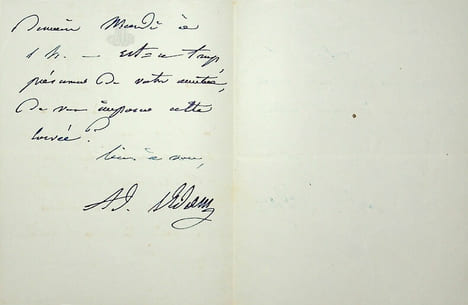 Demain Mardi à
1 h. — est-ce trop
présumer de votre amitié,
de vous imposer cette
corvée?
bien à vous,
Ad. Adam